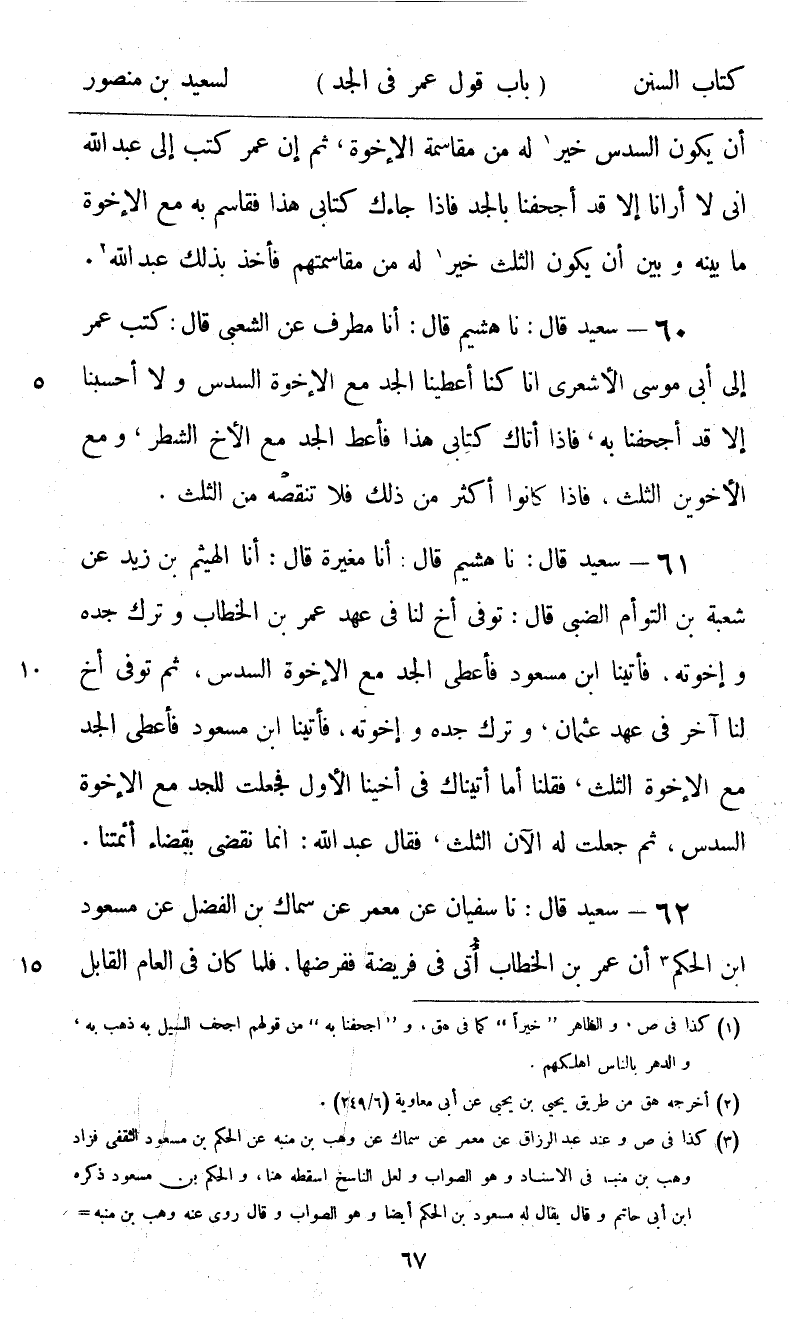 كتاب السنن ( باب قول عمر فى الجد ) لسعيد بن منصور
أن يكون السدس خير١ له من مقاسمة الإخوة، ثم إن عمر كتب إلى عبد الله
انى لا أرانا إلا قد أجحفنا بالجد فاذا جاءك كتابى هذا فقاسم به مع الإخوة
ما بينه و بين أن يكون الثلث خير١ له من مقاسمتهم فأخذ بذلك عبد الله٢.
٦٠ – سعيد قال: نا هشيم قال: أنا مطرف عن الشعبى قال: كتب عمر
إلى أبى موسى الأشعرى انا كنا أعطينا الجد مع الإخوة السدس و لا أحسبنا ٥
إلا قد أجحفنا به، فاذا أتاك كتابى هذا فأعط الجد مع الأخ الشطر، و مع
الأخوين الثلث، فاذا كانوا أكثر من ذلك فلا تنقصه من الثلث.
٦١ – سعيد قال: نا هشيم قال: أنا مغيرة قال: أنا الهيثم بن زيد عن
شعبة بن التوأم الضبى قال: توفى أخ لنا فى عهد عمر بن الخطاب و ترك جده
و إخوته، فأتينا ابن مسعود فأعطى الجد مع الإخوة السدس، ثم توفى أخ ١٠
لنا آخر فى عهد عثمان، و ترك جده و إخوته، فأتينا ابن مسعود فأعطى الجد
مع الإخوة الثلث، فقلنا أما أتيناك فى أخينا الأول فجعلت للجد مع الإخوة
السدس، ثم جعلت له الآن الثلث، فقال عبد الله: انما نقضى بقضاء أئمتنا.
٦٢ – سعيد قال: نا سفيان عن معمر عن سماك بن الفضل عن مسعود
ابن الحكم٣ أن عمر بن الخطاب أُتى فى فريضة ففرضها. فلما كان فى العام القابل ١٥
(١) كذا فى ص . و الظاهر "خيراً" كما فى هق، و "اجحفنا به" من قولهم اجحف السيل به ذهب به،
و الدهر بالناس اهلكهم.
(٢) أخرجه هق من طريق يحيى بن يحيى عن أبى معاوية (٢٤٩/٦).
(٣) كذا فى ص و عند عبد الرزاق عن معمر عن سماك عن وهب بن منبه عن الحكم بن مسعود الثقفى فزاد
وهب بن منبه فى الاسناد و هو الصواب و لعل الناسخ اسقطه هنا، و الحكم بن مسعود ذكره
ابن أبى حاتم و قال يقال له مسعود بن الحكم أيضا و هو الصواب و قال روى عنه وهب بن منبه =
٦٧